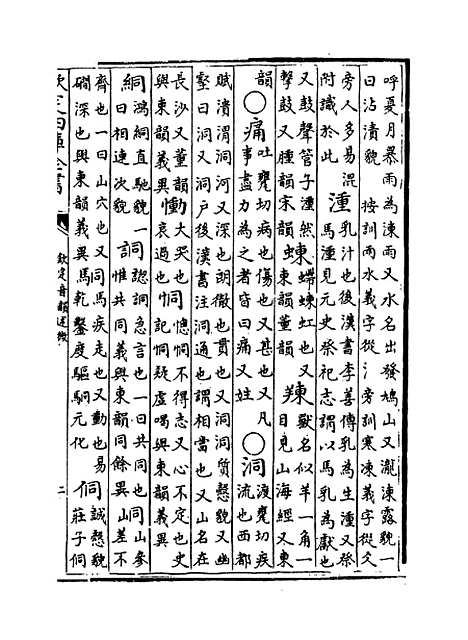 呼夏月暴雨為涷雨又水名出發鳩山又瀧涷露貌一
曰沾漬貌 按訓雨水義字從氵旁訓寒凍義字從冫
旁人多易混
附識於此
湩乳汁也後漢書李善傳乳為生湩又祭
馬湩見元史祭祀志謂以馬乳為獻也
又鼓聲管子湩然
擊鼓又腫韻宋韻
蝀螮蝀虹也又
東韻董韻
䍶獸名似羊一角一
目見山海經又東
韻
〇痛吐甕切病也傷也又甚也又凡
事盡力為之者皆曰痛又姓
〇洞渡甕切疾
流也西都
賦潰渭洞河又深也朗徹也貫也又洞洞質慤貌又幽
壑曰洞又洞户後漢書注洞通也謂相當也又山名在
長沙又董韻
與東韻義異
慟大哭也
哀過也
恫憁恫不得志又心不定也史
記恫疑虛喝與東韻義異
絧鴻絧直馳貌一
曰相連次貌
詷誋詷急言也一曰共同也
惟共同義與東韻同餘異
峒山參
差不
齊也一曰山穴也又
磵深也與東韻義異
駧馬疾走也又動也易
乾鑿度驅駧元化
侗誠慤貌
莊子侗
欽定四庫全書
欽定音韻述微
二